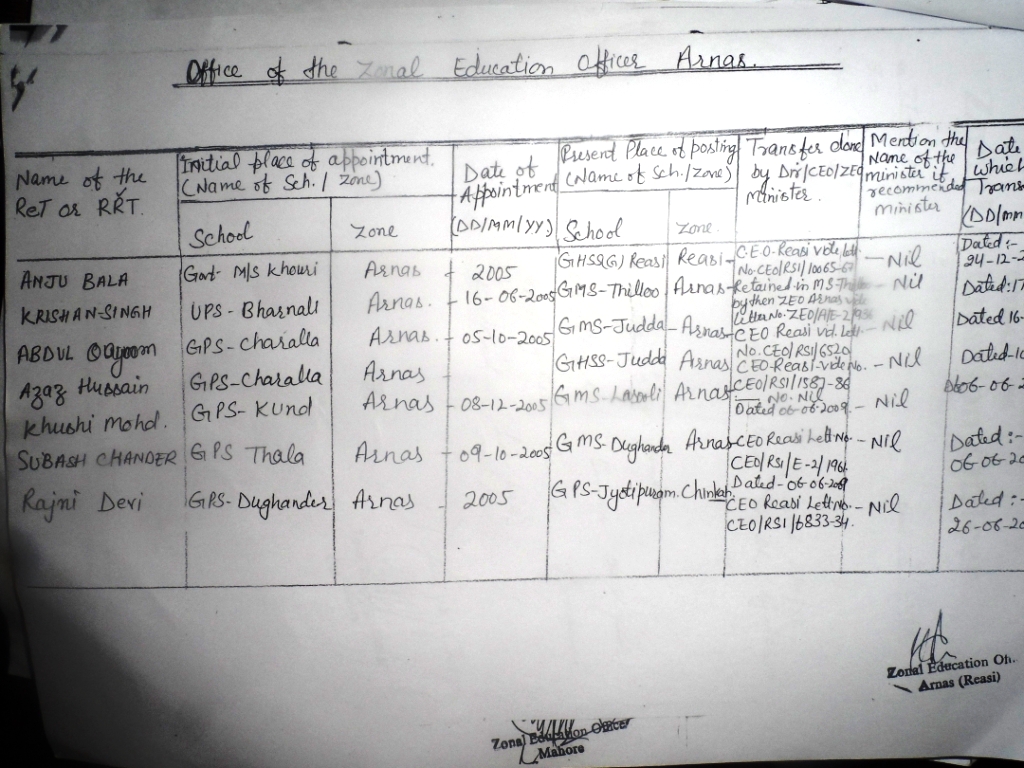 Office of the Zonal Education Officer Arnas.
Name of the ReT or RRT. | Initial place of appointment. (Name of Sch./ Zone) | Date of Appointment (DD/MM/YY) | Present Place of posting (Name of Sch./Zone) | Transfer done by Dir/CEO/ZEO Minister. | Mention the Name of the minister if recommended minister | Date which Trans (DD/mm
School | Zone | School | Zone.
ANJU BALA | Govt- M/S Khouri | Arnas | 2005 | GHSS(G) Reasi | Reasi | C.E.O-Reasi vide No. CEO/RSI/10065-67 | Nil | Dated:- 24-12-2
KRISHAN-SINGH | UPS - Bharnali | Arnas. | 16-06-2005 | GMS-Thilloo | Arnas | Retained in MS by then ZEO Arnas Letter No. ZEO/A/E-2/ | Nil | Dated:17
ABDUL Qayoom | GPS-Charalla | Arnas. | 05-10-2005 | GMS-Judda | Arnas | CEO Reasi vid. Lett- No. CEO/RSI/6520 | Nil | Dated 16-
Azaz Hussain | GPS-Charalla | Arnas | GHSS-Judda | Arnas | CEO-Reasi-vide No. CEO/RSI/1587-86 | Nil | Dated-10
Khushi Mohd. | GPS-Kund | Arnas | 08-12-2005 | GMS | Arnas | No. Nil Dated 06-06-2009. | Nil | 06-06-2
SUBASH CHANDER | GPS Thala | Arnas | 09-10-2005 | GMS-Dughander | Arnas | CEO Reasi Lett No- CEO/RSI/E-2/196 Dated-06-06-2009 | Nil | Dated:- 06-06-20
Rajni Devi | GPS-Dughander | Arnas | 2005 | GPS-Jyotipuram | Chinkah. | CEO Reasi Lett No. CEO/RSI/6833-34. | Nil | Dated:- 26-06-20
Zonal Education Off.
Arnas (Reasi)
Zonal Education Officer
Mahore